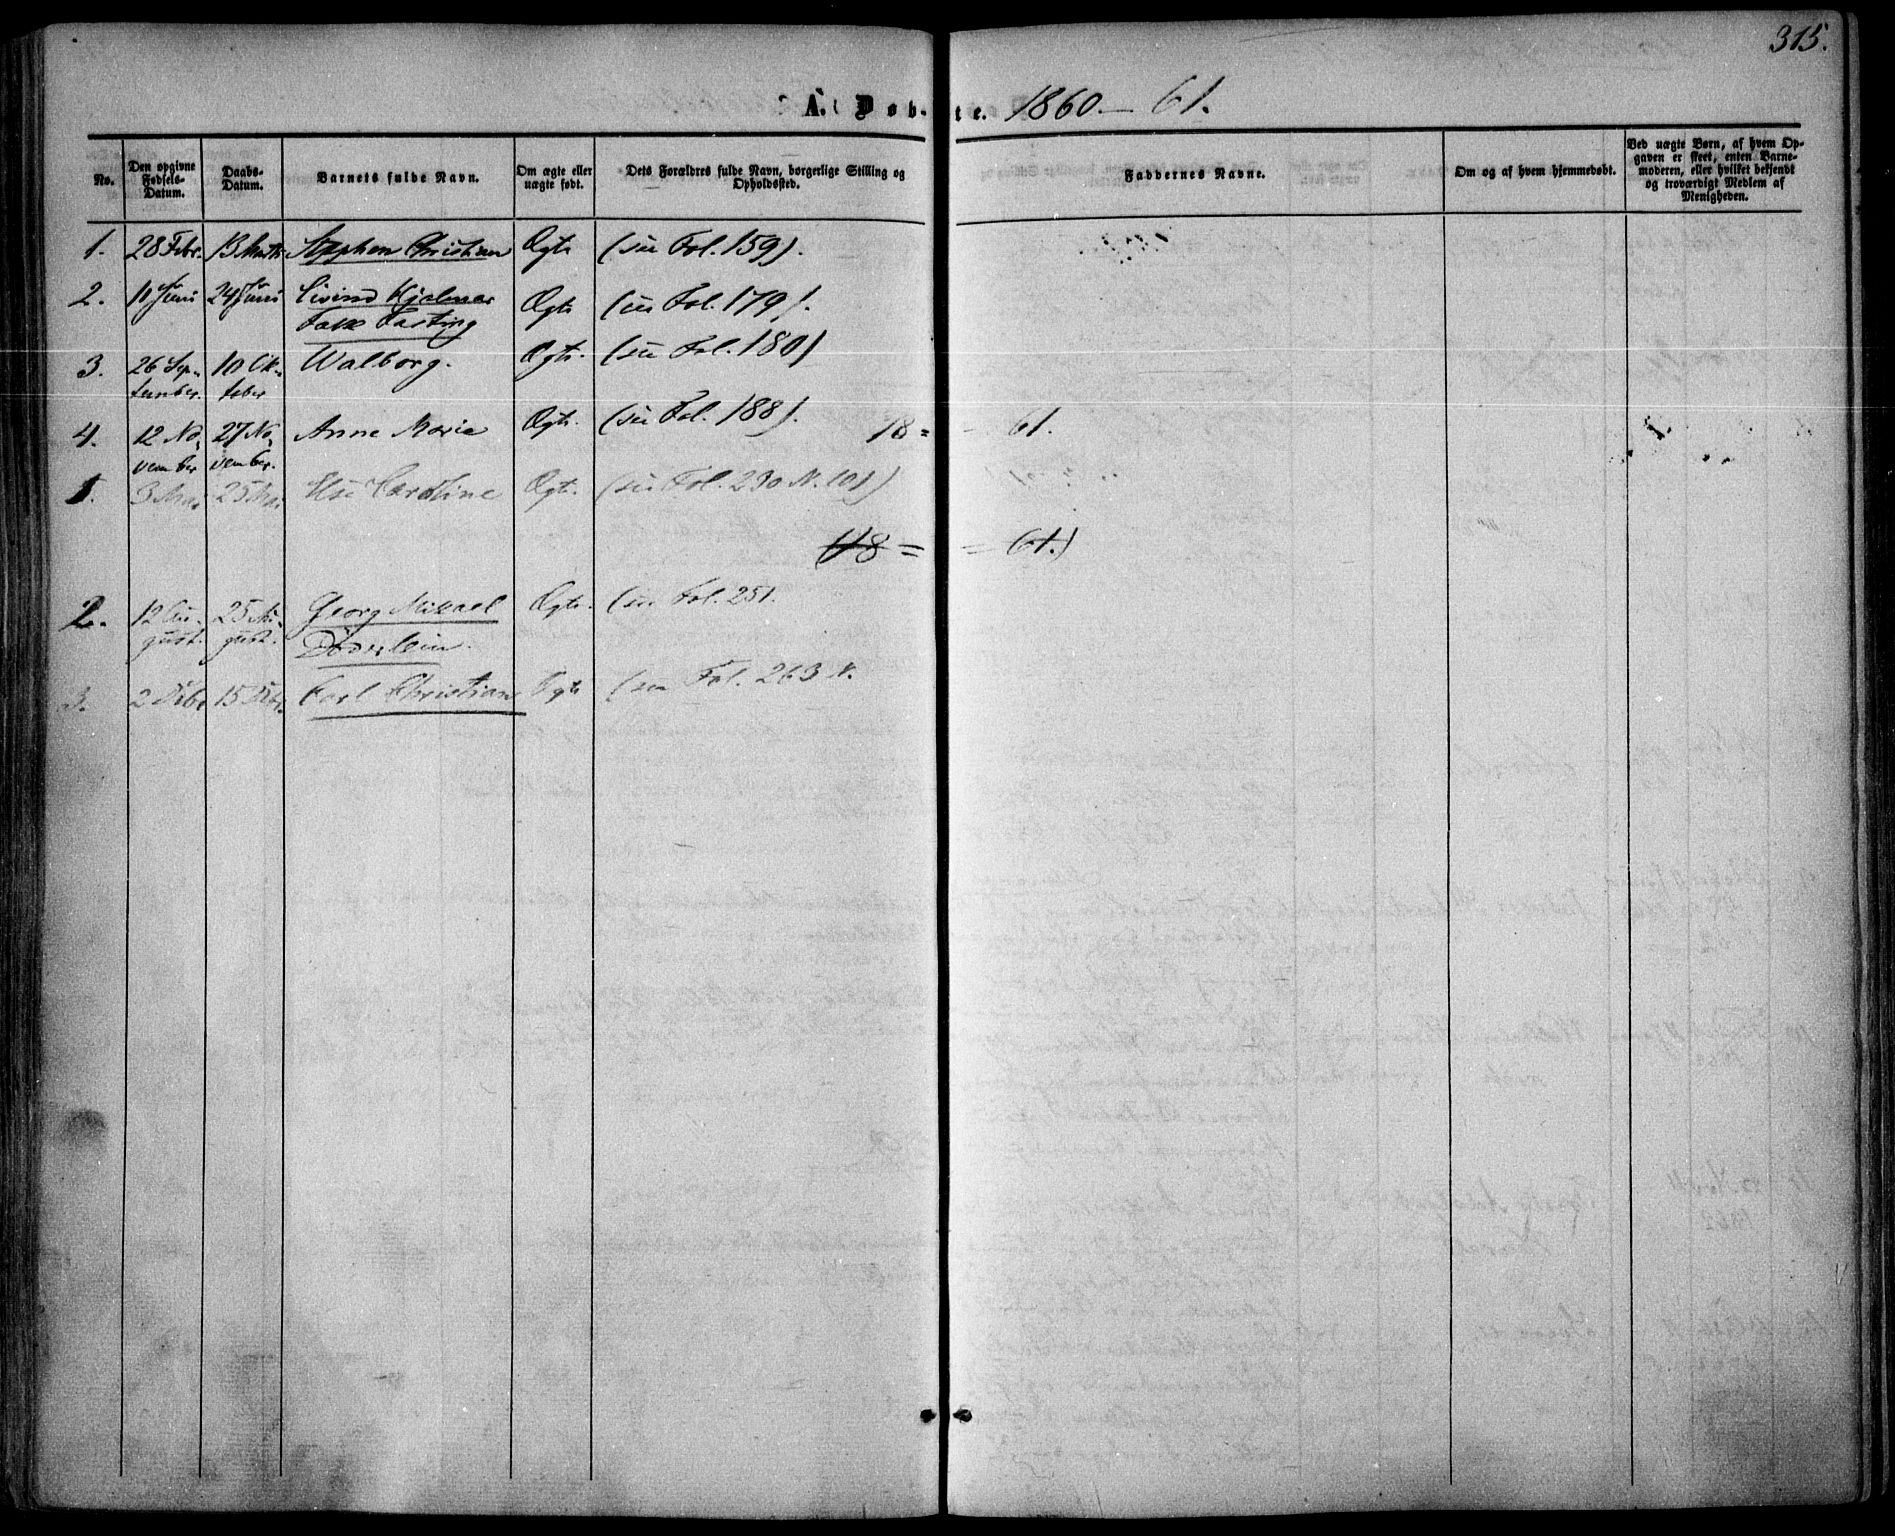 315.
A. Døbte. 1860 - 61.
No.
Den opgivne Fødsels-Datum.
Daabs-Datum.
Barnets fulde Navn.
Om ægte eller uægte født.
Dets Forældres fulde Navn, borgerlige Stilling og Opholdssted.
Faddernes Navne.
Om og af hvem hjemmedøbt.
Ved uægte Børn, af hvem Opgaven er skeet, enten Barnemoderen, eller hvilket bekjendt og troværdigt Medlem af Menigheden.
1. 28 Febr. 13 Marts Stephen Christian Ægte (see Fol. 159).
2. 10 Juni 24 Juni Eivind Hjalmar Ægte (see Fol. 179).
Falk Fasting
3. 26 Sep- 10 Ok- Walborg. Ægte. (see Fol. 180)
tember. tober
4. 12 No- 27 No- Anne Marie Ægte. (see Fol. 188).
vember vember.
18 = - 61.
1. 3 Mai 25 Mai Else Caroline Ægte. (see Fol. 230 N. 101)
(18 = = 61.)
2. 12 Au- 25 Au- Georg Mikael Ægte. (see Fol. 251.
gust. gust. Döderlein.
3. 2 Debr 15 Debr. Carl Christian Ægte (see Fol. 263 N.